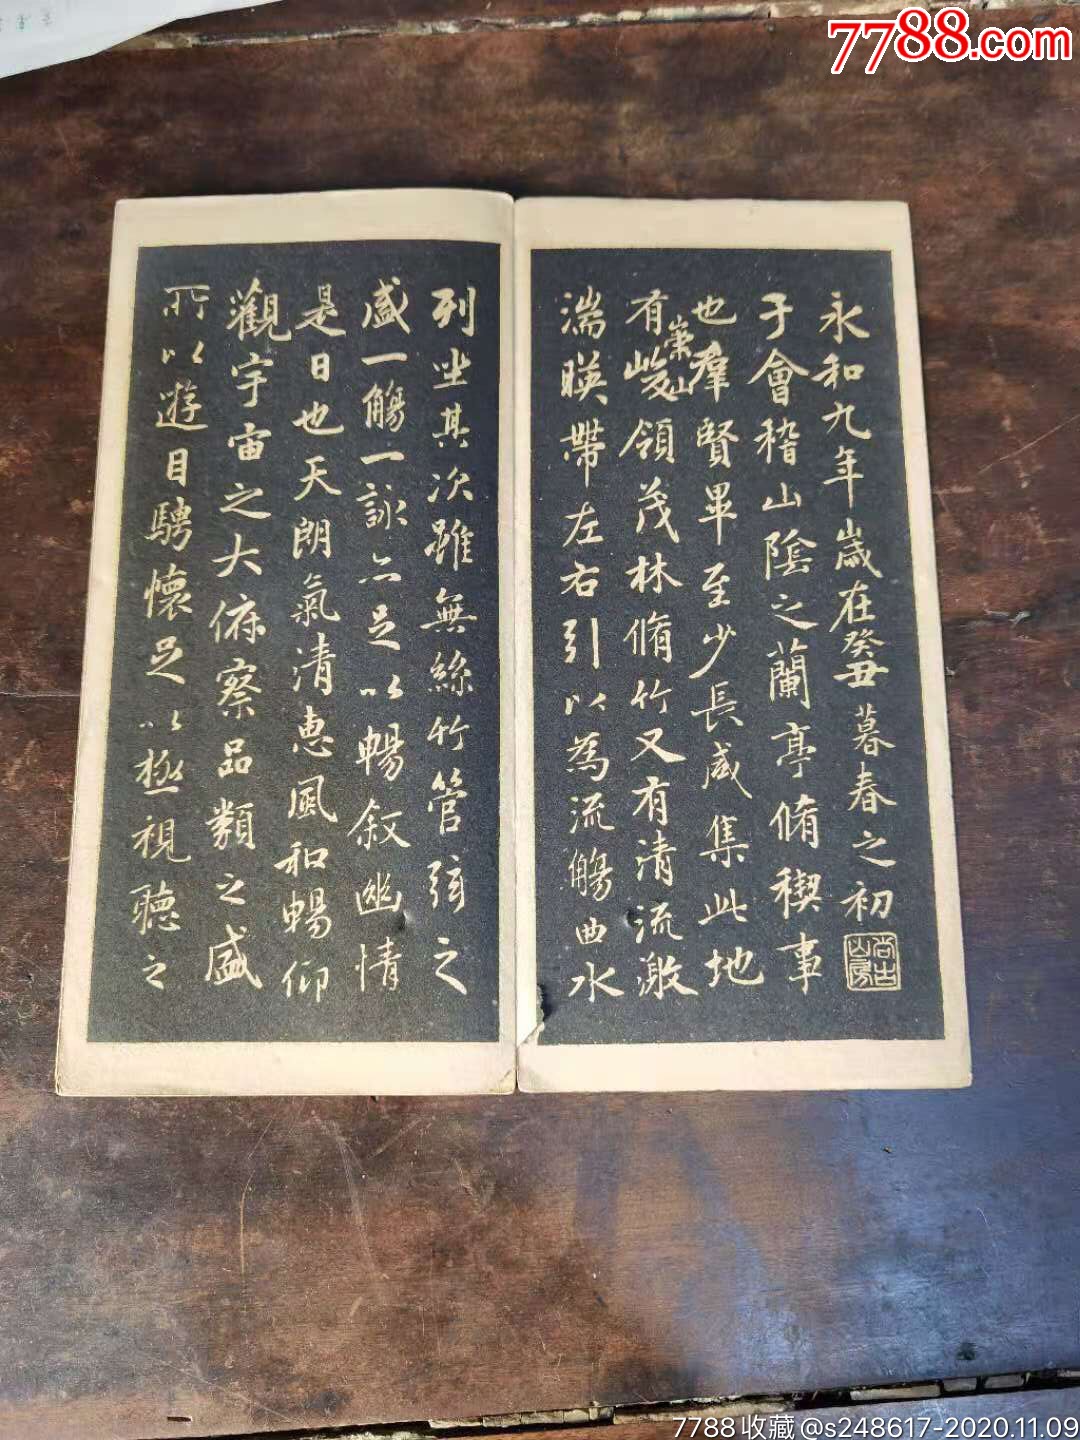 7788.com
永和九年歲在癸丑暮春之初
尚古山房
于會稽山陰之蘭亭脩稧事
也羣賢畢至少長咸集此地
有崇山峻領茂林脩竹又有清流激
湍暎帶左右引以為流觴曲水
列坐其次雖無絲竹管弦之
盛一觴一詠亦足以暢叙幽情
是日也天朗氣清惠風和暢仰
觀宇宙之大俯察品類之盛
所以遊目騁懷足以極視聽之
7788收藏@s248617-2020.11.09